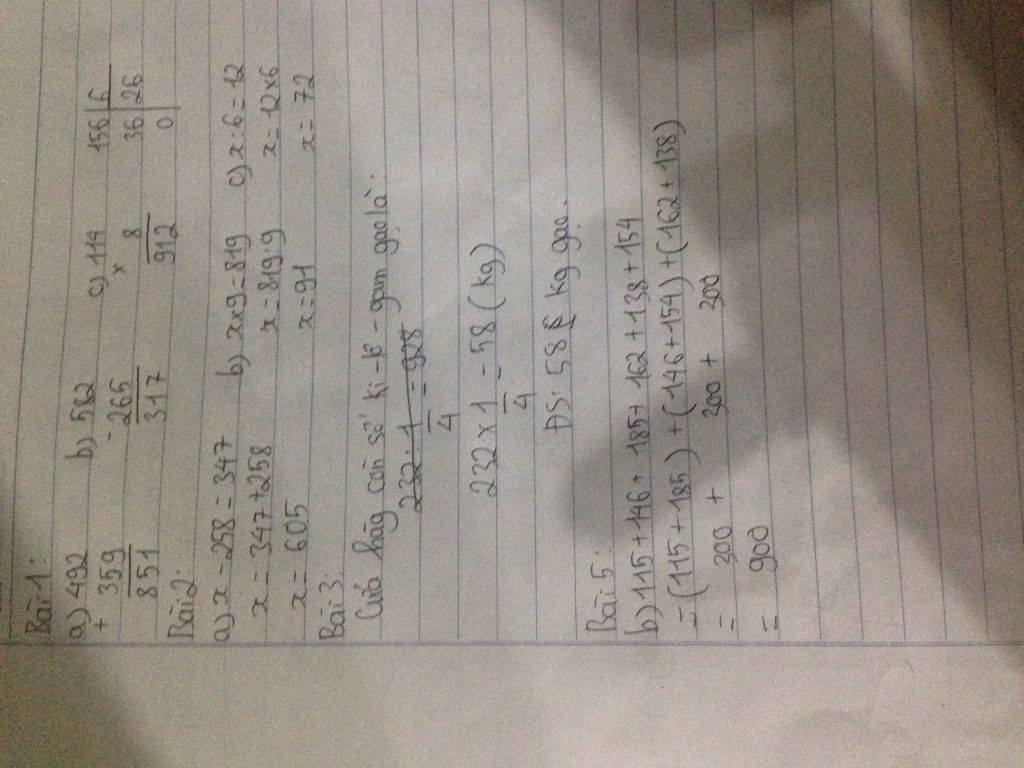 Bài 1:
a) 492 b) 582 c) 114 156 6
+ 359 - 265 x 8 36 26
851 317 912 0
Bài 2:
a) x - 258 = 347 b) x x 9 = 819 c) x : 6 = 12
x = 347 + 258 x = 819 : 9 x = 12 x 6
x = 605 x = 91 x = 72
Bài 3:
Cửa hàng còn số ki-lô-gam gạo là:
232 x 1/4 = 58 (kg)
ĐS: 58 kg gạo.
Bài 5:
b) 115 + 146 + 185 + 162 + 138 + 154
= (115 + 185) + (146 + 154) + (162 + 138)
= 300 + 300 + 300
= 900